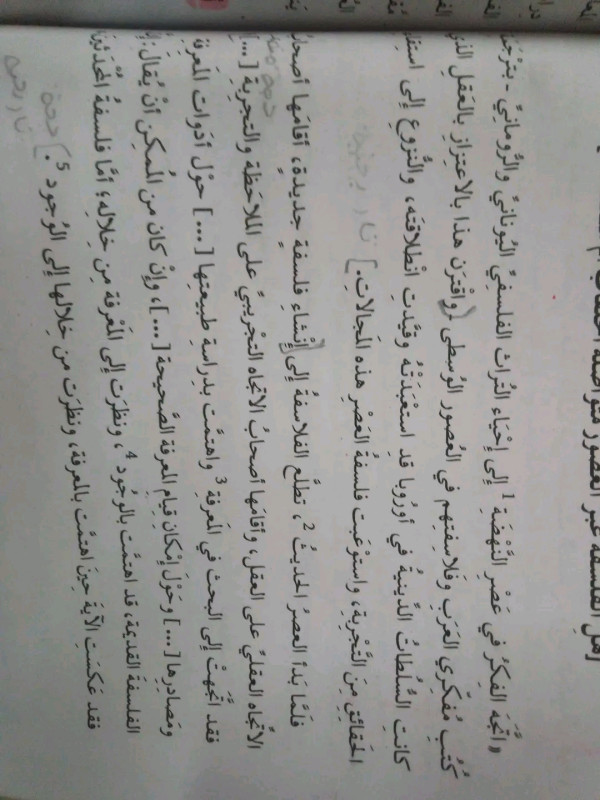 هل الفلسفة عبر العصور متواصلة الحلقات أم
«اتَّجَهَ الفِكرُ في عَصْرِ النَّهْضَةِ 1 إلى إحْيَاء التُراث الفلسفيِّ اليُونانيِّ والرُّومانيِّ - بتَرْجَمَة
كُتُبِ مُفكّري العَرَبِ وفَلاسِفتِهم في العُصور الوُسطى (واقْتَرَن هذا بالاعتِزازِ بالعَقلِ الذي
كانت السُّلطاتُ الدِّينيةُ في أورُوبا قد استَعْبَدَتْهُ وقيَّدتِ انْطلاقتَه، والنُّزوعِ إلى استِقلا
الحَقائقِ مِنَ التَّجْرِبةِ، واستوْعَبت فلسفةُ العَصْرِ هذه المجَالاتِ.] تاريخية
فلَمَّا بَدأ العصرُ الحديثُ 2، تطلَّع الفلاسفةُ إلى [إنْشاءِ فلسفةٍ جديدةٍ، أقامَها أصحابُ
الاتِّجاه العقليِّ على العقلِ، وأقامَها أصحابُ الاتجاه التجْريبيِّ على الملاحَظة والتجربةِ [...]
فقد اتَّجَهتْ إلى البحث في المَعرفةِ 3 واهتمَّت بدِراسةِ طبيعتِها [...] حوْل أدَواتِ المَعرفة
ومَصادِرِها [...] وحَوْلَ إمْكانِ قيامِ المعرفة الصَّحيحة [...]، وإنْ كان من المُمكِن أنْ يُقال:
الفلسفةَ القديمة، قد اهتمَّت بالوجُود 4، ونظرَت إلى المَعْرفة مِن خِلالِه؛ أمَّا فلسفةُ المُحْدَثين
فقد عكسَتِ الآيةَ حِينَ اهتمَّت بالمعرفة، ونظرَت من خِلالِها إلى الوُجود 5.] حجة
تاريخية